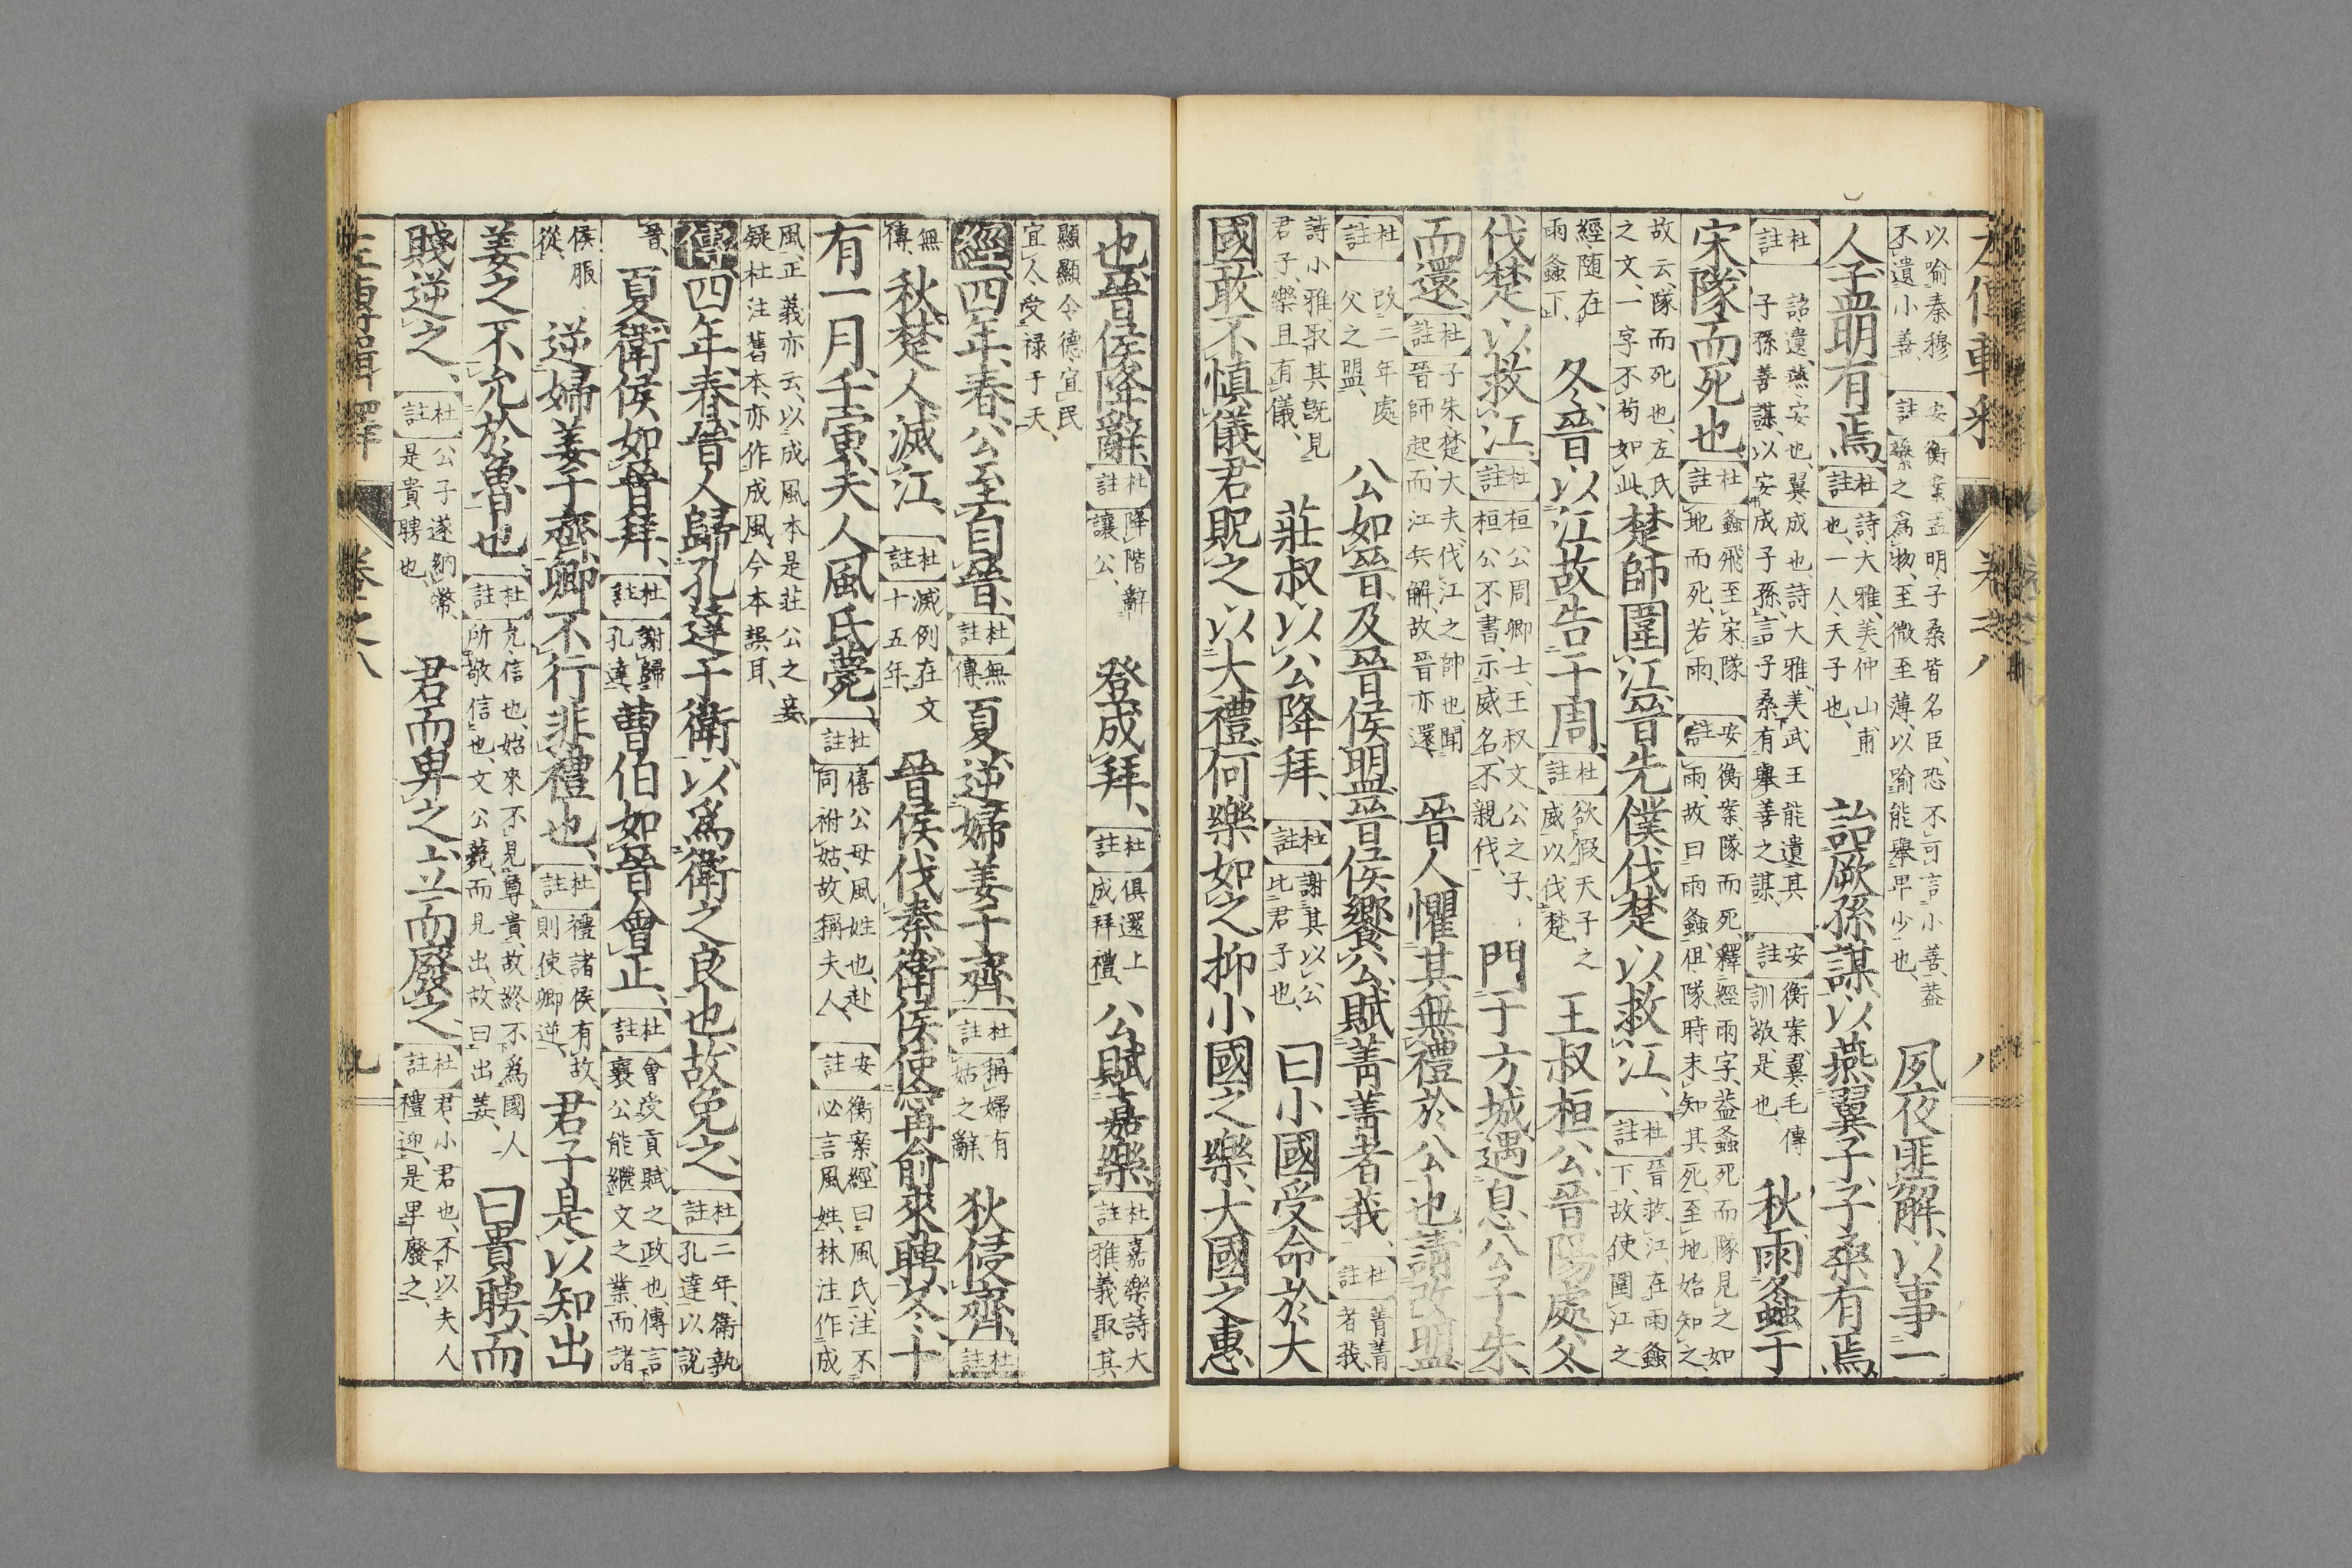 左傳輯釋 卷之八 八
以喻秦穆不遺小善、安註衡案、孟明子桑皆名臣、恐不可言小善、蓋蘩之爲物、至微至薄、以喻能擧卑少也、夙夜匪解、以事一
人、孟明有焉、杜註詩大雅、美仲山甫也、一人天子也、詒厥孫謀、以燕翼子、子桑有焉、
杜註詒遺、燕安也、翼成也、詩大雅、美武王能遺其子孫善謀、以安成子孫、言子桑有擧善之謀、安註衡案、翼毛傳訓敬、是也、秋雨螽于
宋、隊而死也、杜註螽飛至宋隊地而死、若雨、安註衡案、隊而死、釋經雨字、蓋螽死而隊、見之如雨、故曰雨螽、但隊時未知其死、至地始知之、
故云隊而死也、左氏之文、一字不苟如此、楚師圍江、晉先僕伐楚以救江、杜註晉救江、在雨螽下、故使圍江之
經隨在雨螽下、冬、晉以江故告于周、杜註欲假天子之威以伐楚王叔桓公、晉陽處父
伐楚以救江、杜註桓公周卿士、王叔文公之子、桓公不書、示威名、不親伐、門于方城、遇息公子朱
而還、杜註子朱楚大夫、伐江之帥也、聞晉師起、而江兵解、故晉亦還、晉人懼其無禮於公也、請改盟、
杜註改二年處父之盟、公如晉、及晉侯盟、晉侯饗公、賦菁菁者莪、杜註菁菁者莪、
詩小雅、取其旣見君子、樂且有儀、莊叔以公降拜、杜註謝其以公比君子也、曰小國受命於大
國、敢不愼儀、君貺之以大禮、何樂如之、抑小國之樂、大國之惠
也、晉侯降辭、杜註降階辭讓公、登成拜、杜註俱還上成拜禮、公賦嘉樂、杜註嘉樂詩大雅、義取其
顯顯令德、宜民宜人、受祿于天、
經四年、春、公至自晉、杜註無傳夏、逆婦姜于齊、杜註稱婦有姑之辭、狄侵齊、杜註
無傳、秋、楚人滅江、杜註滅例在文十五年、晉侯伐秦、衛侯使甯俞來聘、冬、十
有一月、壬寅、夫人風氏薨、杜註僖公母、風姓也、赴同祔姑、故稱夫人、安註衡案、經曰風氏、注不必言風姓、林注作成
風、正義亦云、以成風本是莊公之妾、疑杜注舊本、亦作成風、今本誤耳、
傳四年、春、晉人歸孔達于衛、以爲衛之良也、故免之、杜註二年、衛執孔達以說
晉、夏、衛侯如晉拜、杜註謝歸孔達、曹伯如晉會正、杜註會受貢賦之政也、傳言襄公能繼文之業、而諸
侯服從、逆婦姜于齊、卿不行、非禮也、杜註禮諸侯有故、則使卿逆、君子是以知出
姜之不允於魯也、杜註允信也、始來不見尊貴、故終不爲國人所敬信也、文公薨、而見出、故曰出姜、曰貴聘、而
賤逆之、杜註公子遂納幣、是貴聘也、君而卑之、立而廢之、杜註君小君也、不以夫人禮迎、是卑廢之、
左傳輯釋 卷之八 九